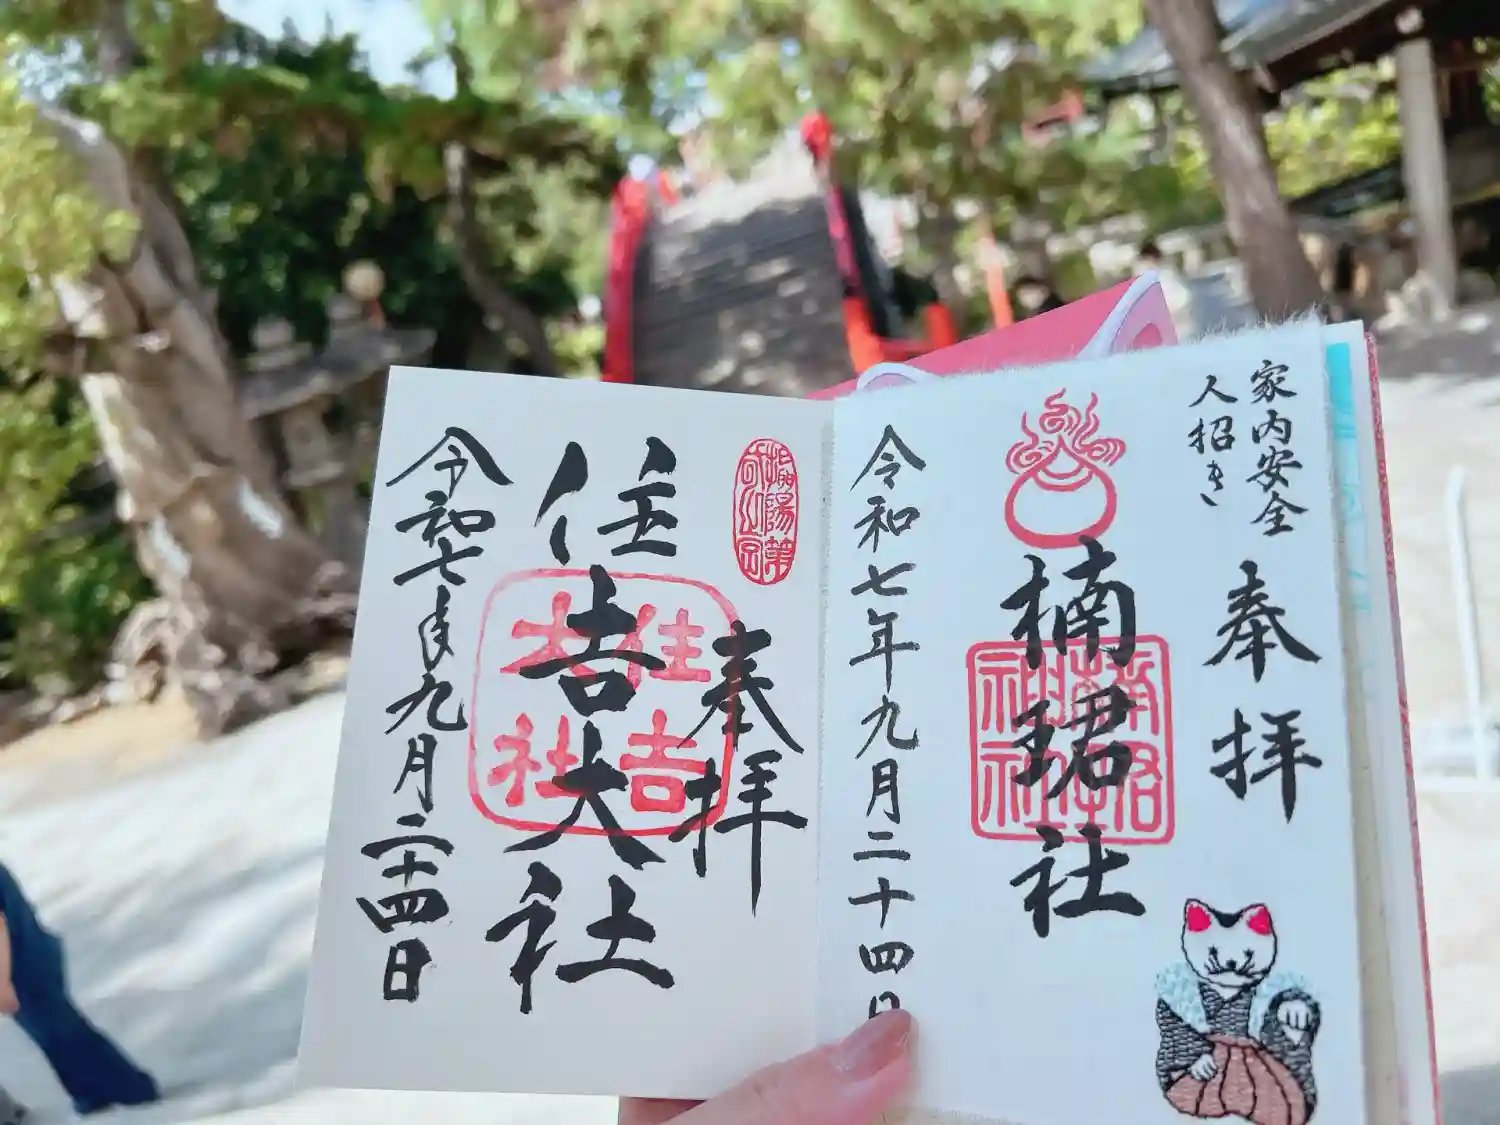 家内安全
人招き
奉拝
楠珺社
楠珺社
神社
令和七年九月二十四日
摂陽第
奉拝
住吉大社
住吉
大社
令和七年九月二十四日